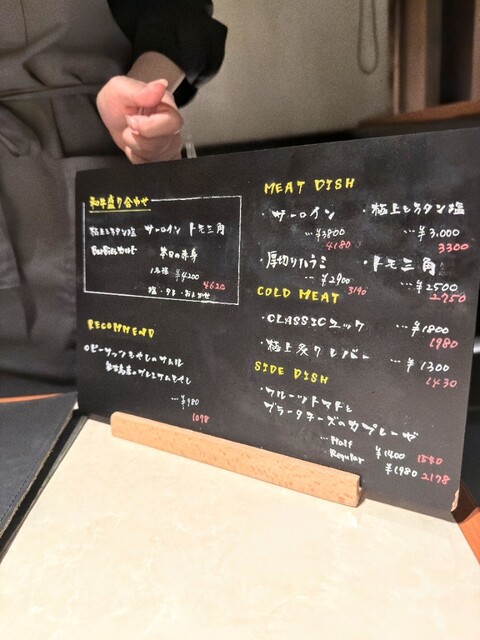 和牛盛り合わせ
極上ヒラタン塩 サーロイン トモ三角
本日の赤身
1人前 ¥4200
4620
塩・タレ・おまかせ
RECOMMEND
○ピーナッツもやしのナムル
...¥980
1078
MEAT DISH
・サーロイン
...¥3800
4180
・極上ヒラタン塩
...¥3.000
3300
・厚切りハラミ
...¥2900
3190
・トモ三角
...¥2500
2750
COLD MEAT
・CLASSICユッケ ...¥1800
1980
・極上炙りレバー ...¥1300
1430
SIDE DISH
・フルーツトマトと
ブラータチーズのカプレーゼ
...Half ¥1400 1540
Regular ¥1980 2178